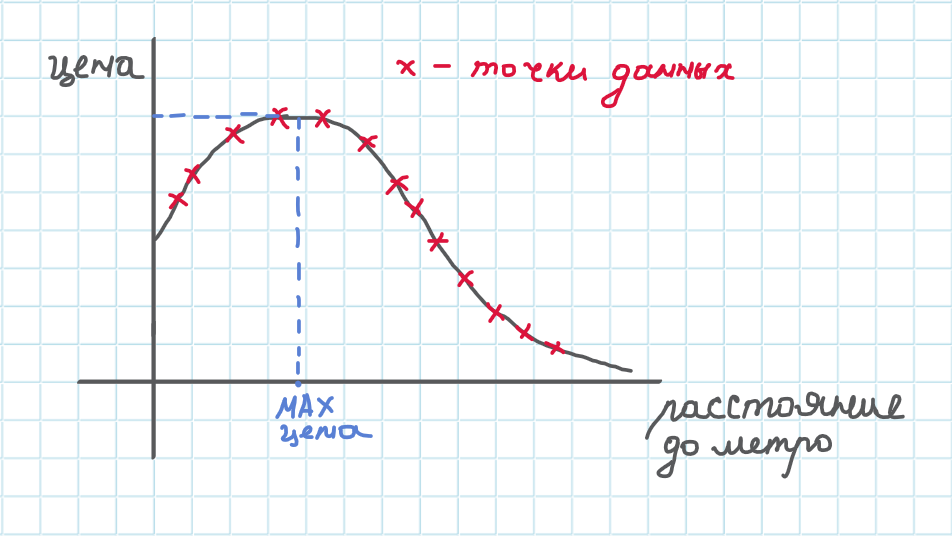 цена
x - точки данных
МАХ
цена
расстояние
до метро